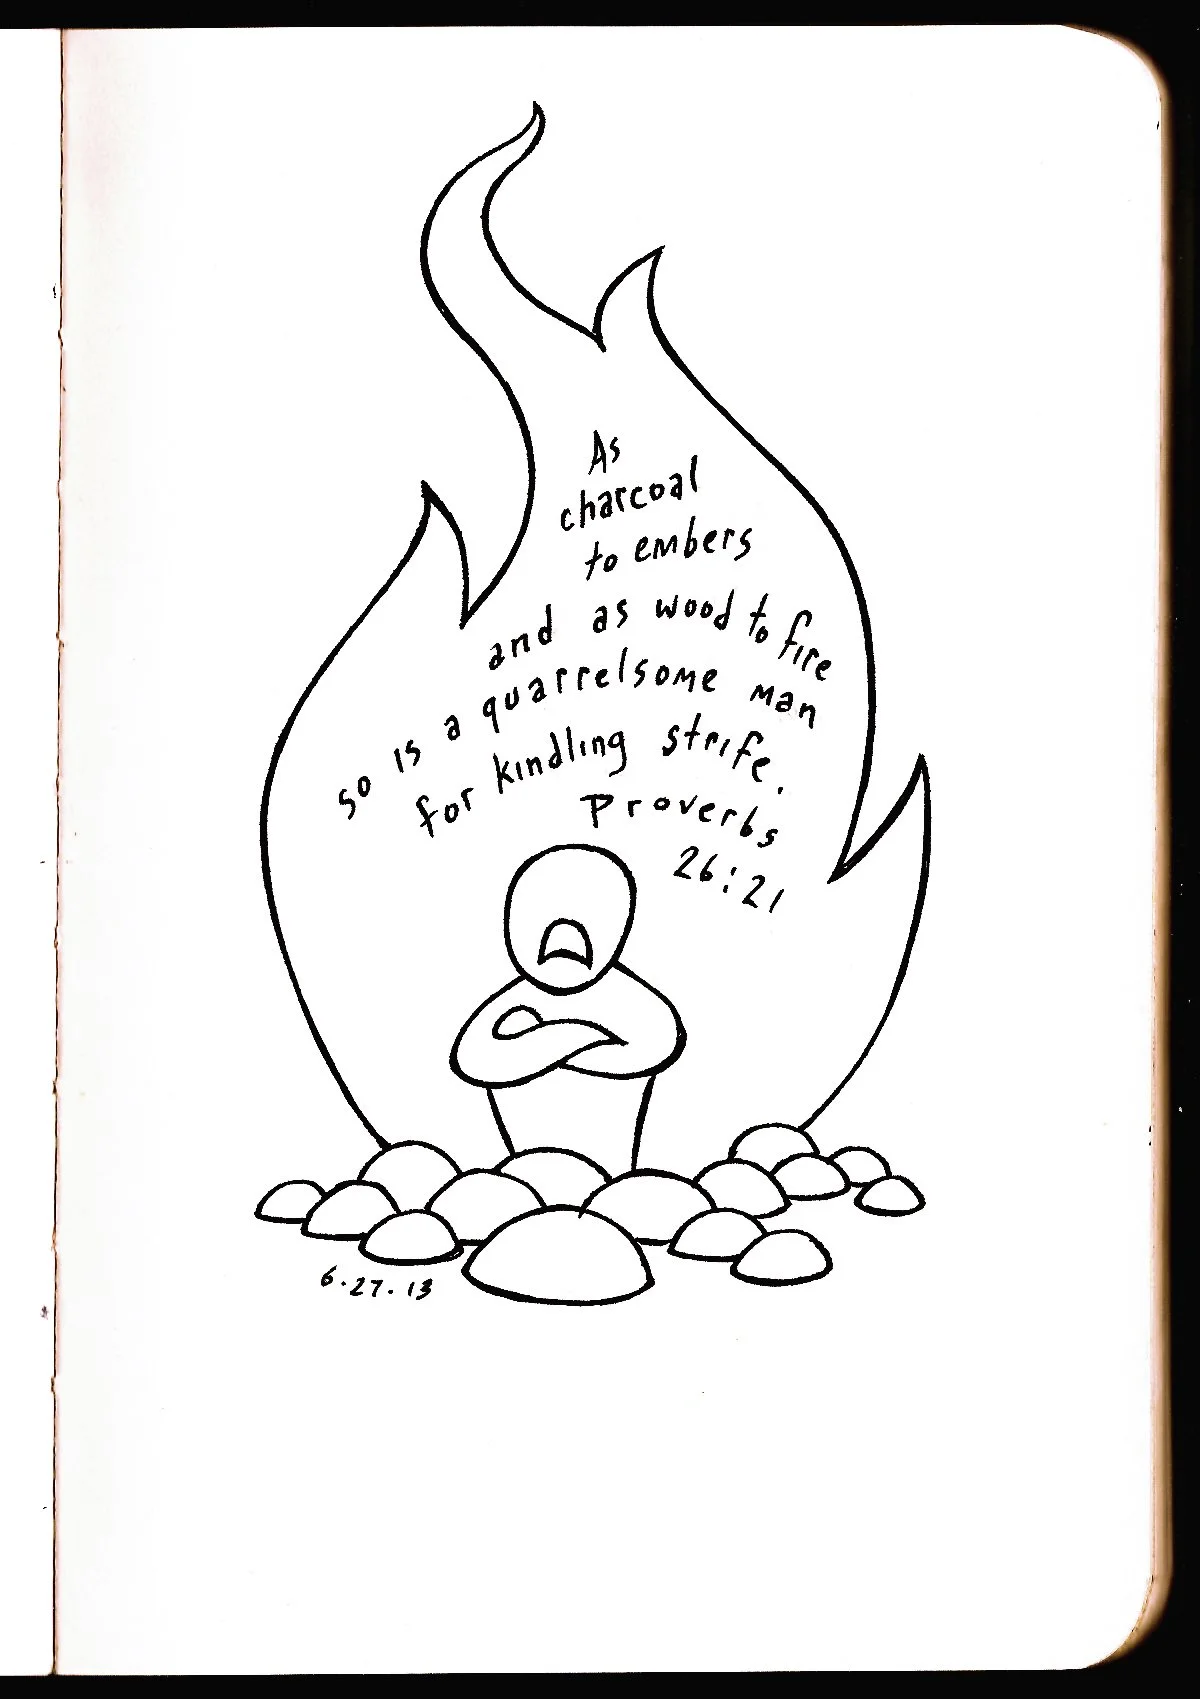 As
charcoal
to embers
and as wood to fire
so is a quarrelsome man
for kindling strife.
Proverbs
26:21
6.27.13